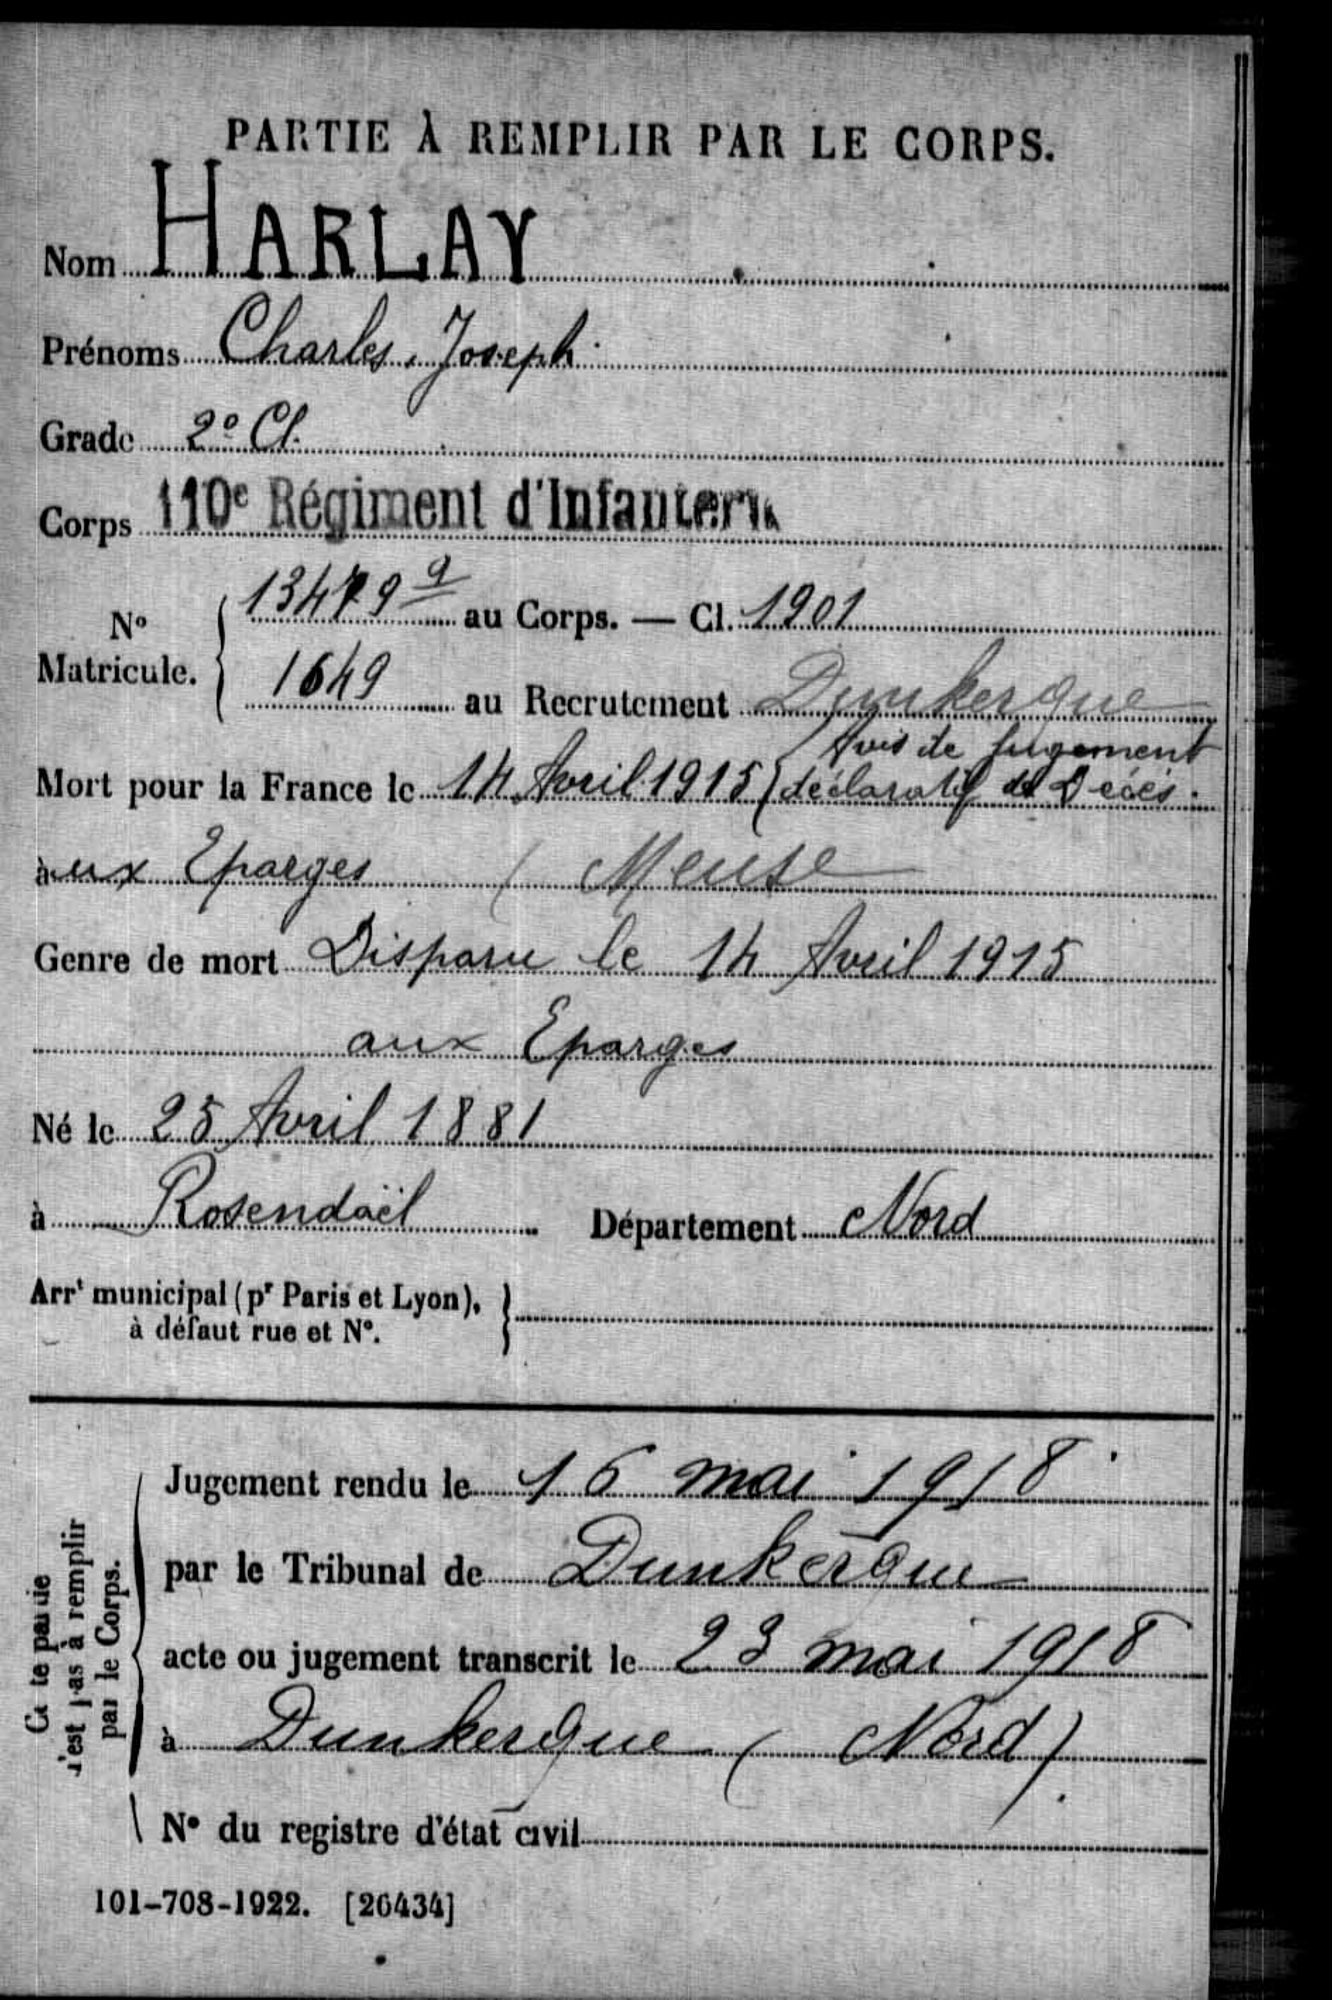 PARTIE À REMPLIR PAR LE CORPS.
Nom HARLAY
Prénoms Charles, Joseph
Grade 2e Cl.
Corps 110e Régiment d'Infanterie
No Matricule. 13479 a au Corps. — Cl. 1901
1649 au Recrutement Dunkerque
Avis de Jugement
Mort pour la France le 14 Avril 1915 (déclaratif de Décès.
aux Eparges ( Meuse
Genre de mort Disparu le 14 Avril 1915
aux Eparges
Né le 25 Avril 1881
à Rosendaël Département Nord
Arrt municipal (pr Paris et Lyon), à défaut rue et No.
Jugement rendu le 16 mai 1918
par le Tribunal de Dunkerque
acte ou jugement transcrit le 23 mai 1918
à Dunkerque ( Nord )
No du registre d'état civil
Cette partie n'est pas à remplir par le Corps.
101-708-1922. [26434]